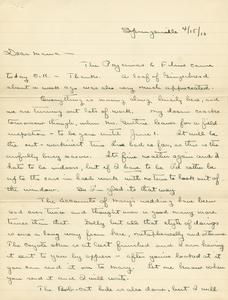 Springville 4/15/12
Dear Mama –
The Pajamas & Films came
today O.K. – Thanks. A loaf of Gingerbread
about a week ago was also very much appreciated.
Everything is moving along finely here, and
we are turning out lots of work. My clean cracks
tomorrow though, when Mr. leaves for a field
inspection – to be gone until June 1. It will be
the out-workiest time I've had so far, as this is the
awfully busy season. It's fine weather again and I
hate to be indoors, but if I have to be I'd rather be
up to the ears in hard work with no time to look out of
the window. So I'm glad its that way.
The accounts of Mary's wedding have been
read over twice and thought over a good many more
times than that. Golly but all that style of doings
is one a long way from here,
The Coyote skin is at last finished and I am having
it sent to you by express – after you've looked at it
you can send it on to Mary. Let me know when
you send it and I will
The Bob-Cat hide is also done, but I will